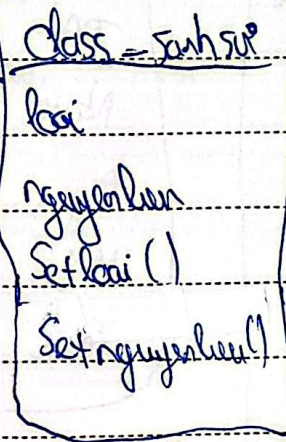 class = sanh sứ
loai
nguyenlieu
Setloai ()
Setnguyenlieu()